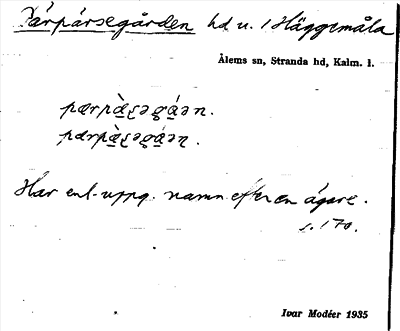 Pärpärsegården hd u. 1 Häggemåla
Ålems sn, Stranda hd, Kalm. l.
Har enl. uppg. namn efter en ägare.
s. 170.
Ivar Modéer 1935